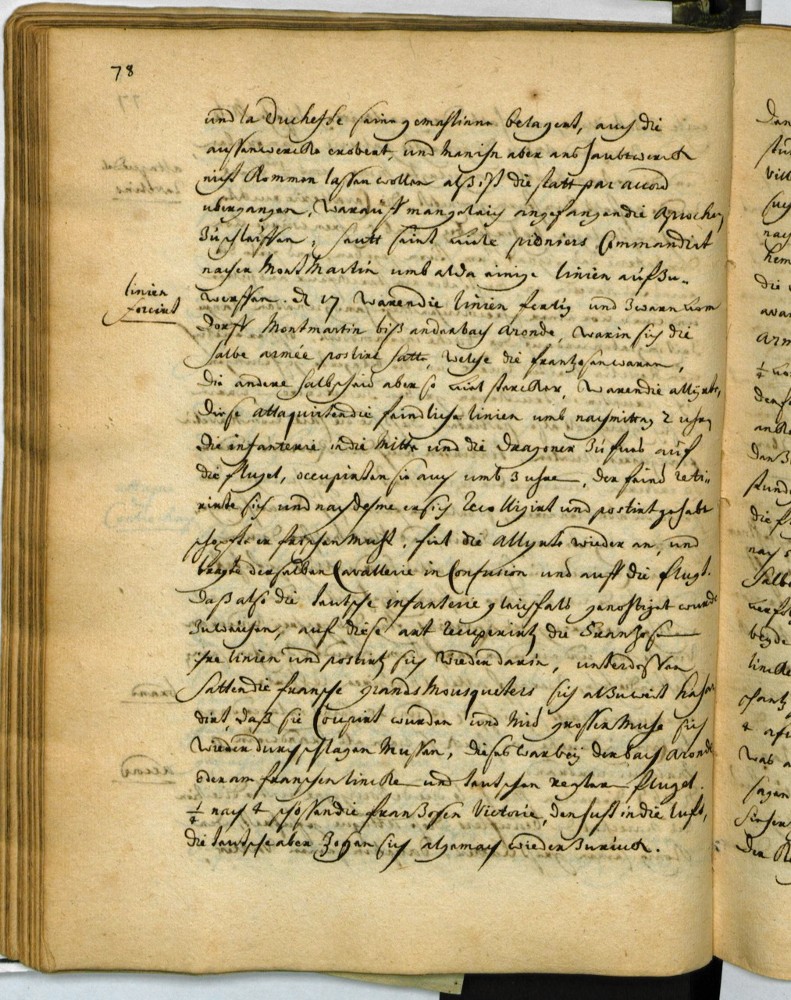 78
und la Duchesse seine gemahlinne belagert, auch die
aussenwercke erobert, und Manish aber ans haubtwerck
nicht kommen lassen wollen alß ist die statt par accord
ubergangen, warauff man gleich angefangen die aproches
zuschleiffen, hatt seine pioniers Commandirt
nacher MontMartin umb alda einige linien auffzu-
linien
forcirt
werffen. d 17 waren die linien fertig und zwarn vom
dorff Montmartin biß an den bach Aronde, warin sich die
halbe armée postirt hatte, welche die frantzosen waren,
die andere halbscheid aber so viel starcker, waren die allijrte,
diese attaquirten die feindliche linien umb nachmittag 2 uhren
die infanterie in die Mitte und die Dragoner zu fues auf
die flugel, occupirten sie auch umb 3 uhre, der feind reti-
rirte sich und nachdeme er sich recolligirt und postirt gehabt
schepfte er frischen Muht, fiel die Allijrte wieder an, und
bragte derselben Cavallerie in Confusion und auff die flugt.
Daß also die teutsche infanterie gleichfals genohtiget wurde
zuweichen, auf diese art recuperirten die Frantzosen
ihre linien und postirten sich wieder darin, unterdessen
hatten die fransche grands Mousqueters sich al zu weit hasar-
dirt, daß sie Coupirt wurden und Mit grosser Muhe sich
wieder durchschlagen Mussen, dieses war bey der bach Aronde
oder am franschen lincke und teutschen rechter flugel.
¼ nach 4 schossen die Franzosen Victorie, den huht in die luft,
die teutsche aber zogen sich algemach wieder zurück.